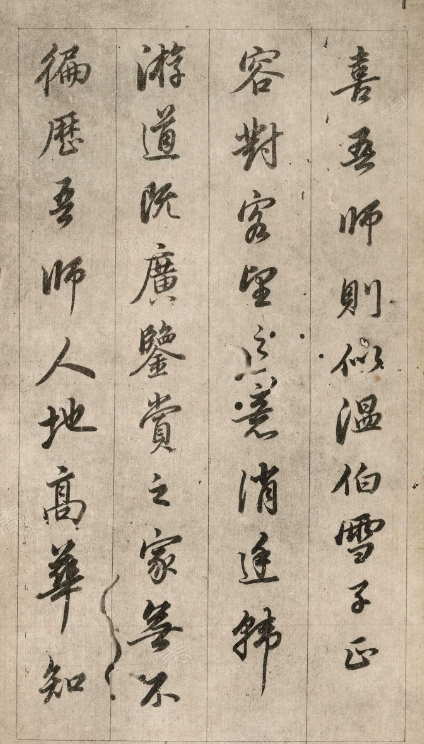 喜吾師則似溫伯雪子正
容對客望之意消廷韓
游道既廣鑒賞之家無不
徧歷吾師人地高華知